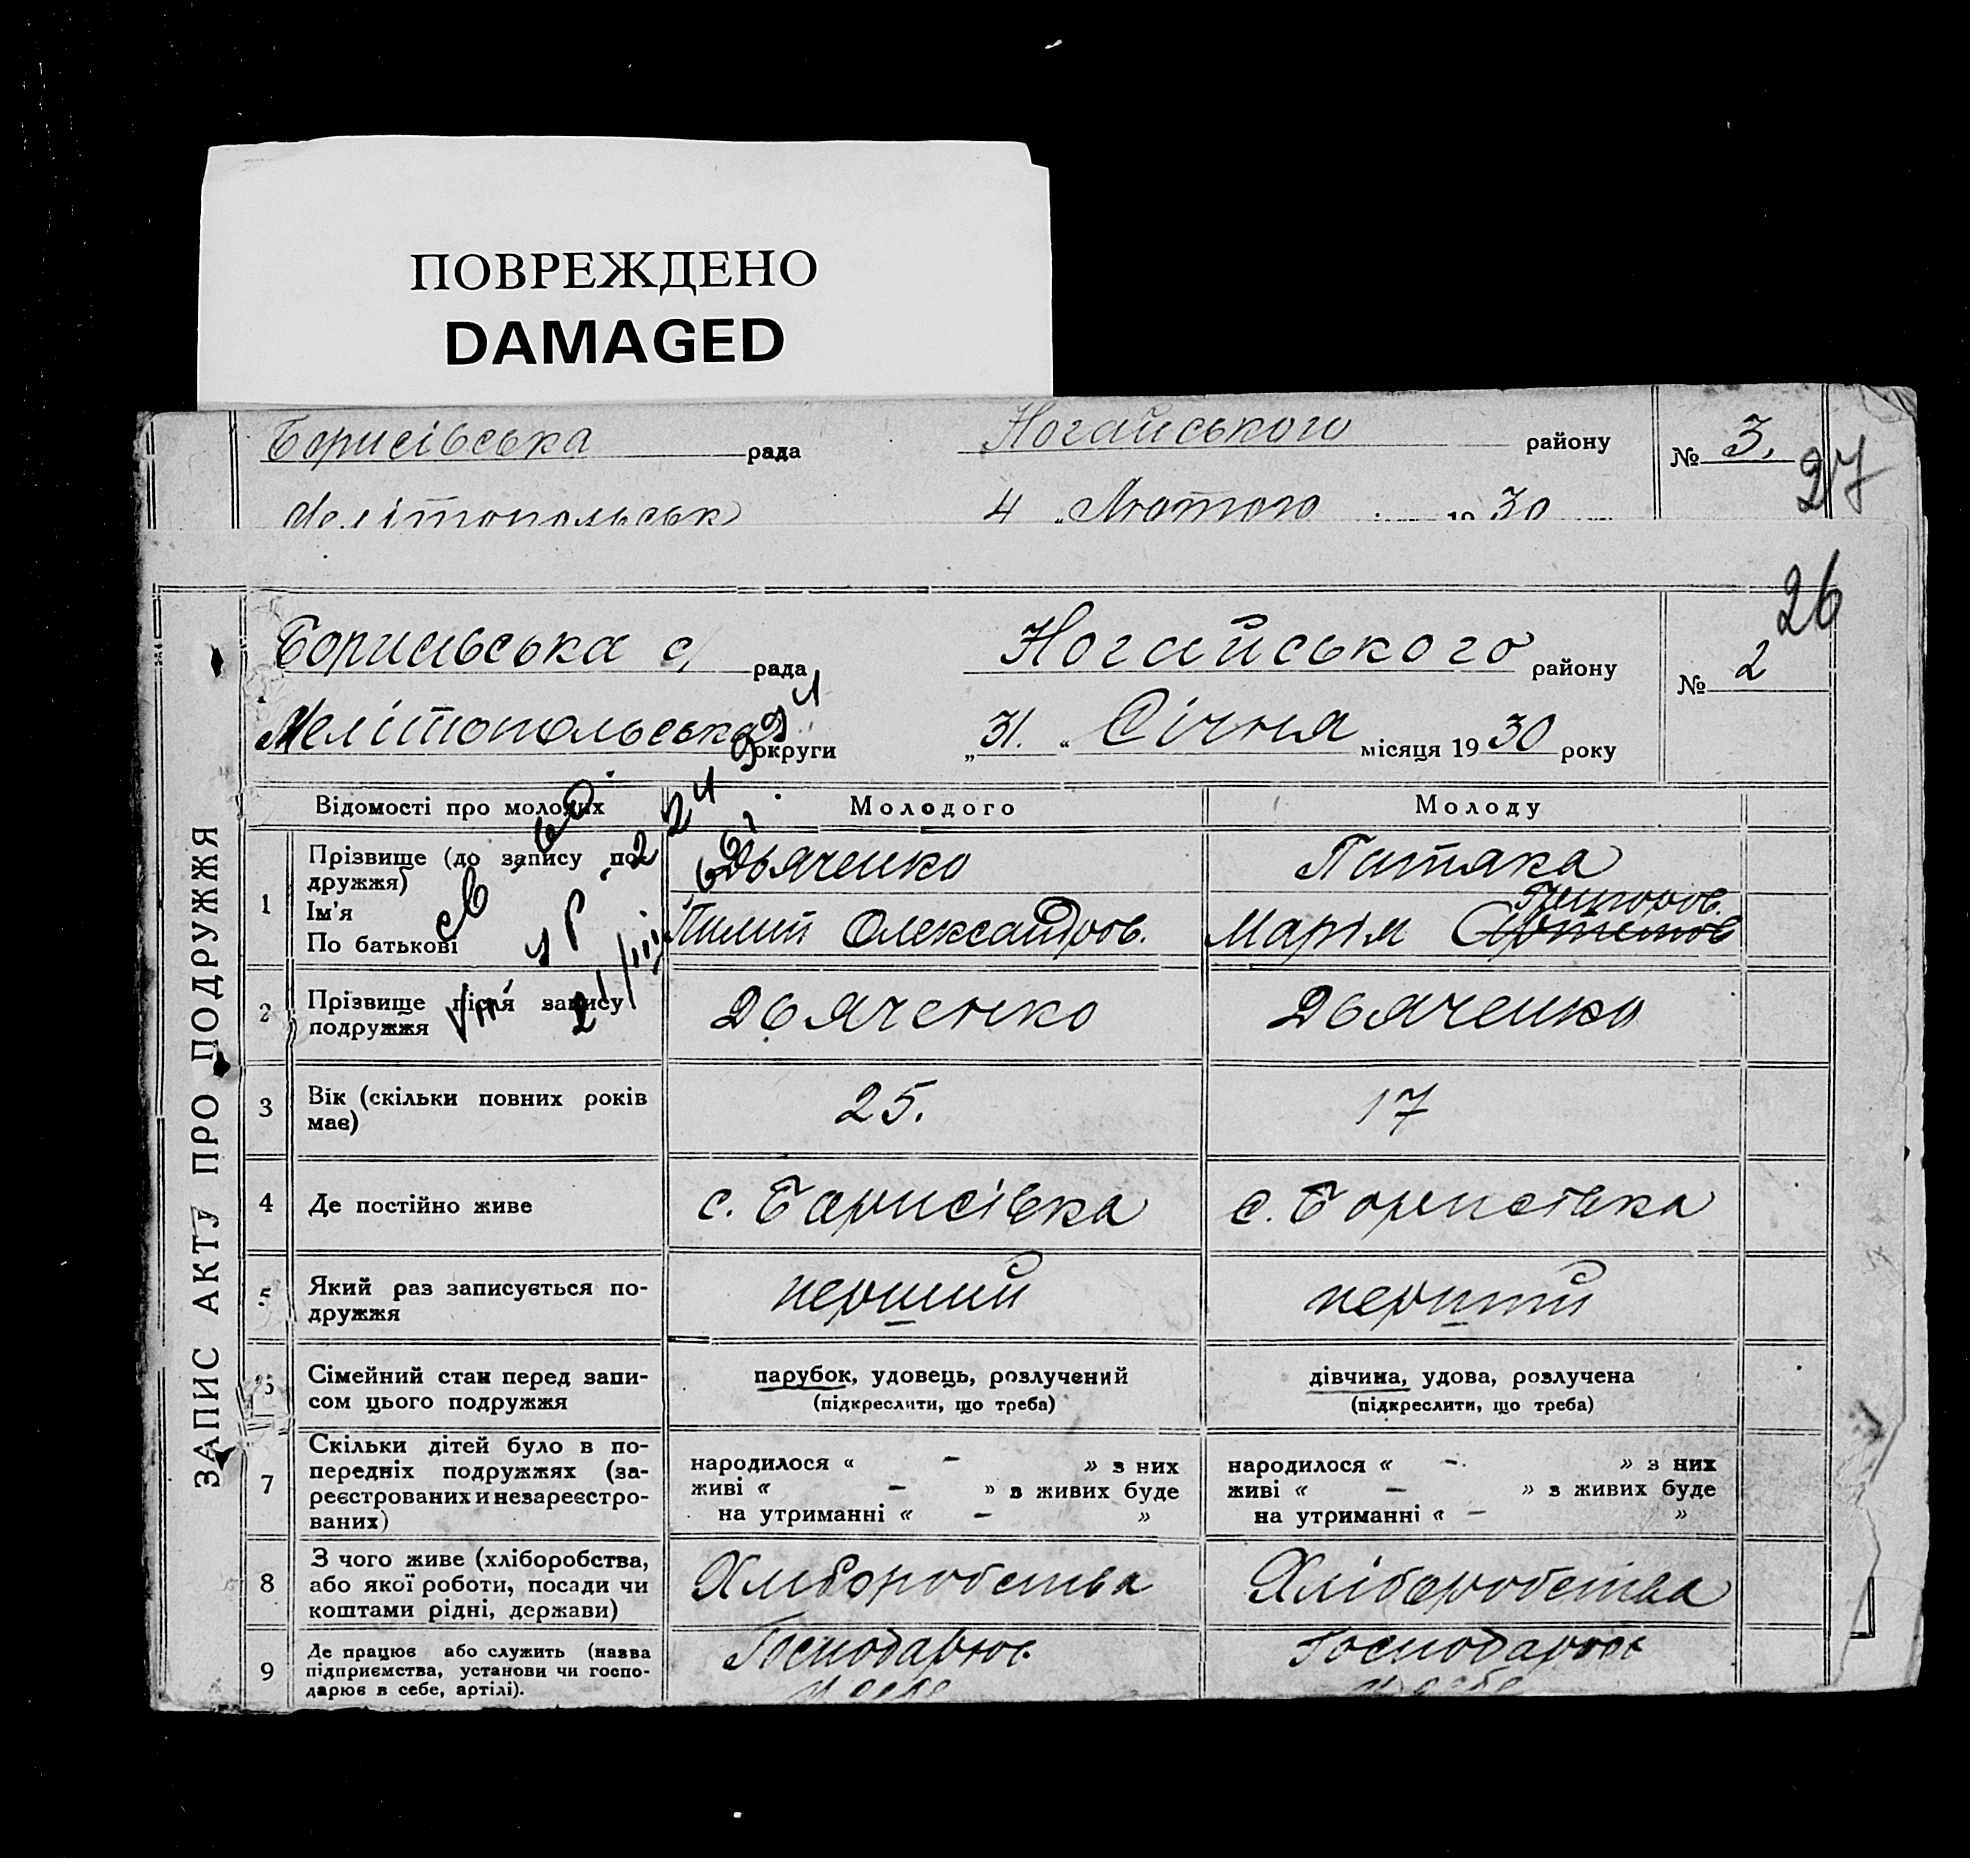 ПОВРЕЖДЕНО
DAMAGED
Борисівська рада Ногайського району № 3.
27
Мелітопольськ 4 „ Лютого 19 30
26
Борисівська с/ рада Ногайського району № 2
Мелітопольська округи „ 31. “ Січня місяця 19 30 року
ЗАПИС АКТУ ПРО ПОДРУЖЖЯ
Відомості про молодих Молодого Молоду
1 Прізвище (до запису по-
дружжя)
Ім'я
По батькові
Дьяченко
Пилип Олександров.
Григоров.
Марія Артемов
2 Прізвище після запису
подружжя
Дьяченко Дьяченко
3 Вік (скільки повних років
має)
25. 17
4 Де постійно живе с. Борисівка с. Борисівка
5 Який раз записується по-
дружжя
перший перший
6 Сімейний стан перед запи-
сом цього подружжя
парубок, удовець, розлучений
(підкреслити, що треба)
дівчина, удова, розлучена
(підкреслити, що треба)
7 Скільки дітей було в по-
передніх подружжях (за-
реєстрованих и незареєстро-
ваних)
народилося « - » з них
живі « - » в живих буде
на утриманні « - »
народилося « - » з них
живі « - » з живих буде
на утриманні « - »
8 З чого живе (хліборобства,
або якої роботи, посади чи
коштами рідні, держави)
Хліборобства Хліборобства
9 Де працює або служить (назва
підприємства, установи чи госпо-
дарює в себе, артілі).
Господарює
Господарює